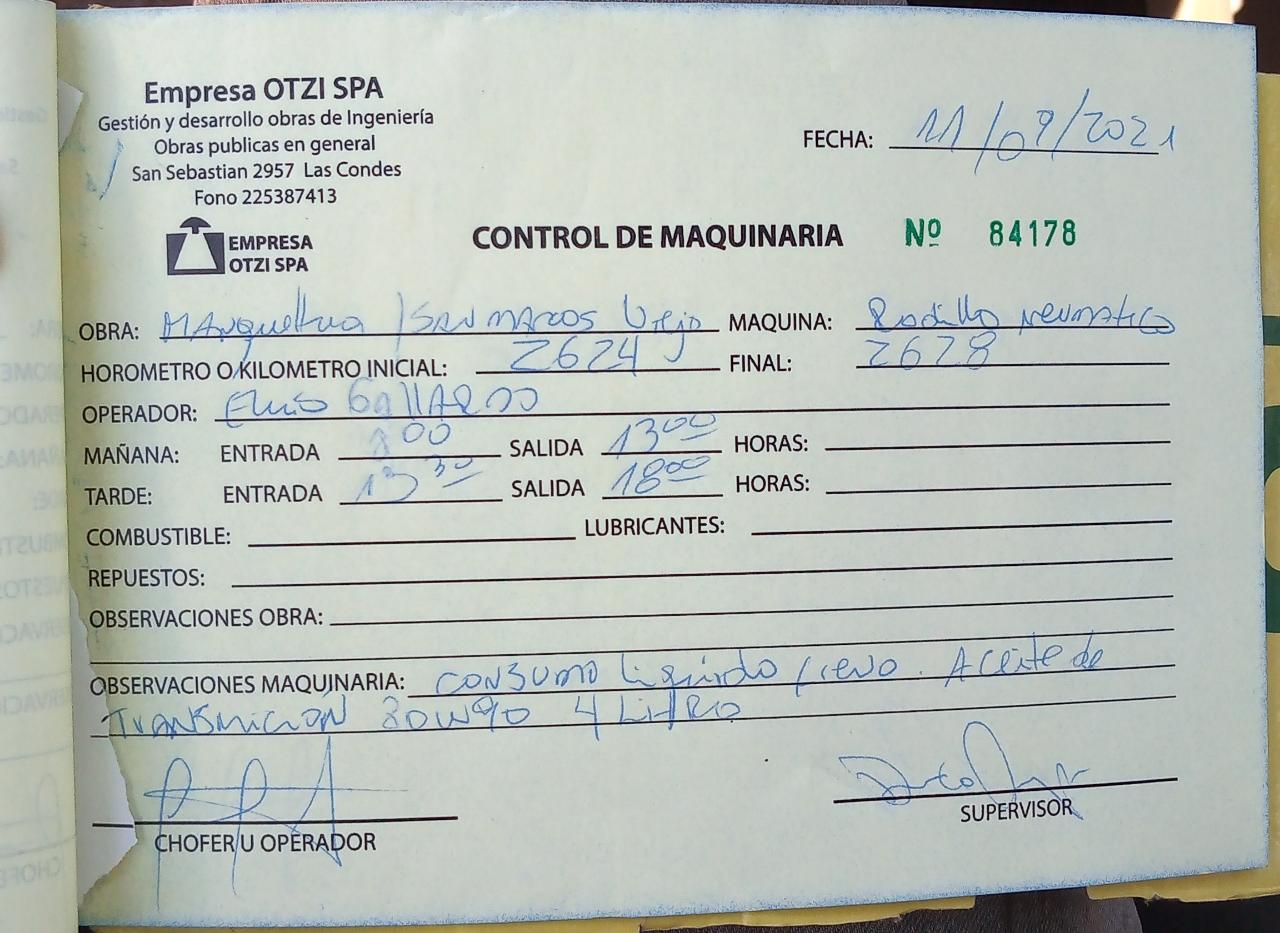 Empresa OTZI SPA
Gestión y desarrollo obras de Ingeniería
Obras publicas en general
San Sebastian 2957 Las Condes
Fono 225387413
FECHA: 11/09/2021
EMPRESA
OTZI SPA
CONTROL DE MAQUINARIA Nº 84178
OBRA: / SAN MARCOS Viejo MAQUINA: Rodillo neumatico
HOROMETRO O KILOMETRO INICIAL: 2624 FINAL: 2628
OPERADOR: GALLARDO
MAÑANA: ENTRADA 8 00 SALIDA 13 00 HORAS:
TARDE: ENTRADA 13 30 SALIDA 18 00 HORAS:
COMBUSTIBLE: LUBRICANTES:
REPUESTOS:
OBSERVACIONES OBRA:
OBSERVACIONES MAQUINARIA: CONSUMO . Aceite de
TRANSMICIÓN 80W90 4 LITRO
CHOFER U OPERADOR
SUPERVISOR